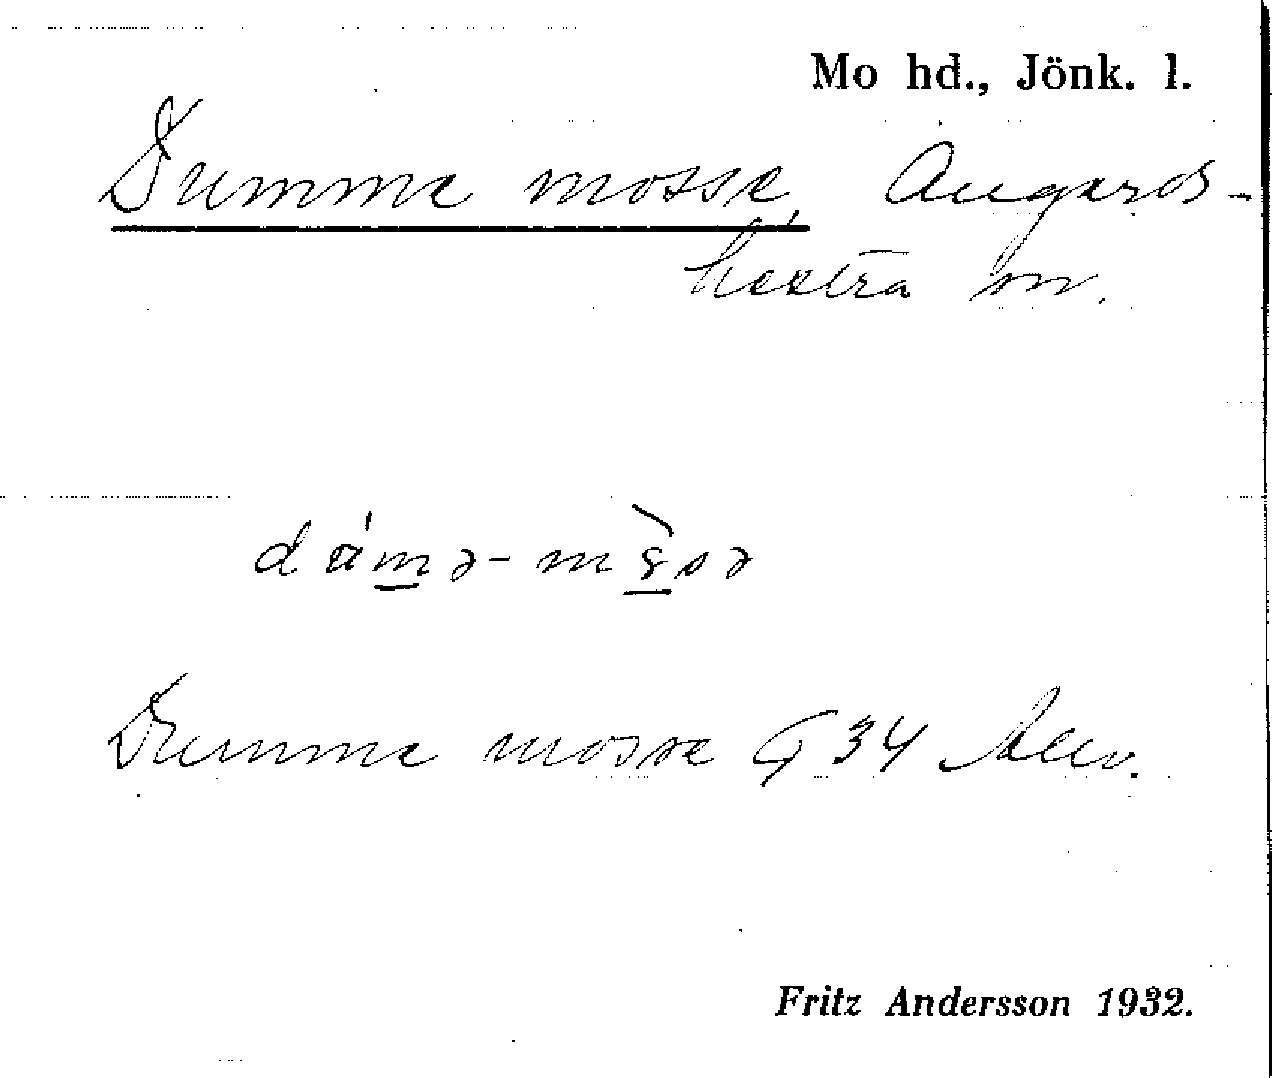 Mo hd., Jönk. l.
Dumme mosse, Angerds-
hestra sn.
Dumme mosse G 34 Allv.
Fritz Andersson 1932.